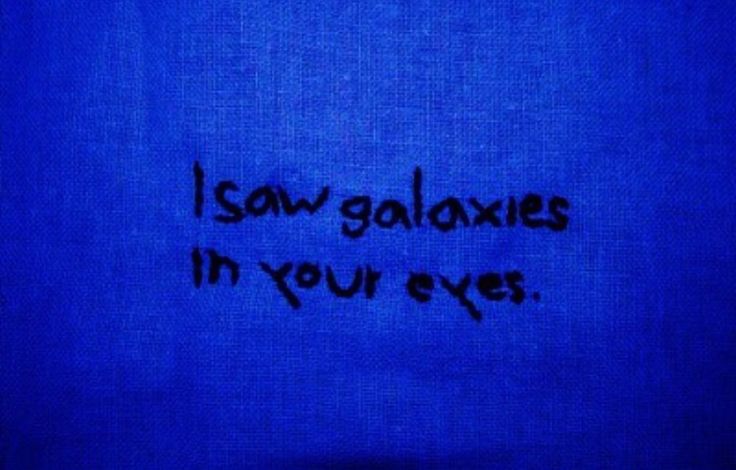 I saw galaxies
in your eyes.